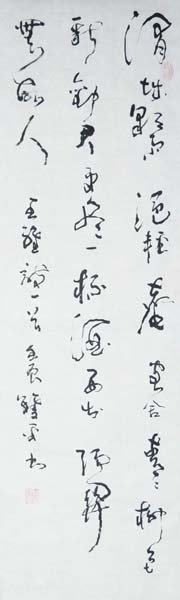 渭城朝雨浥輕塵客舍青青柳色
新勸君更盡一杯酒西出陽關
無故人 王維詩一首 書